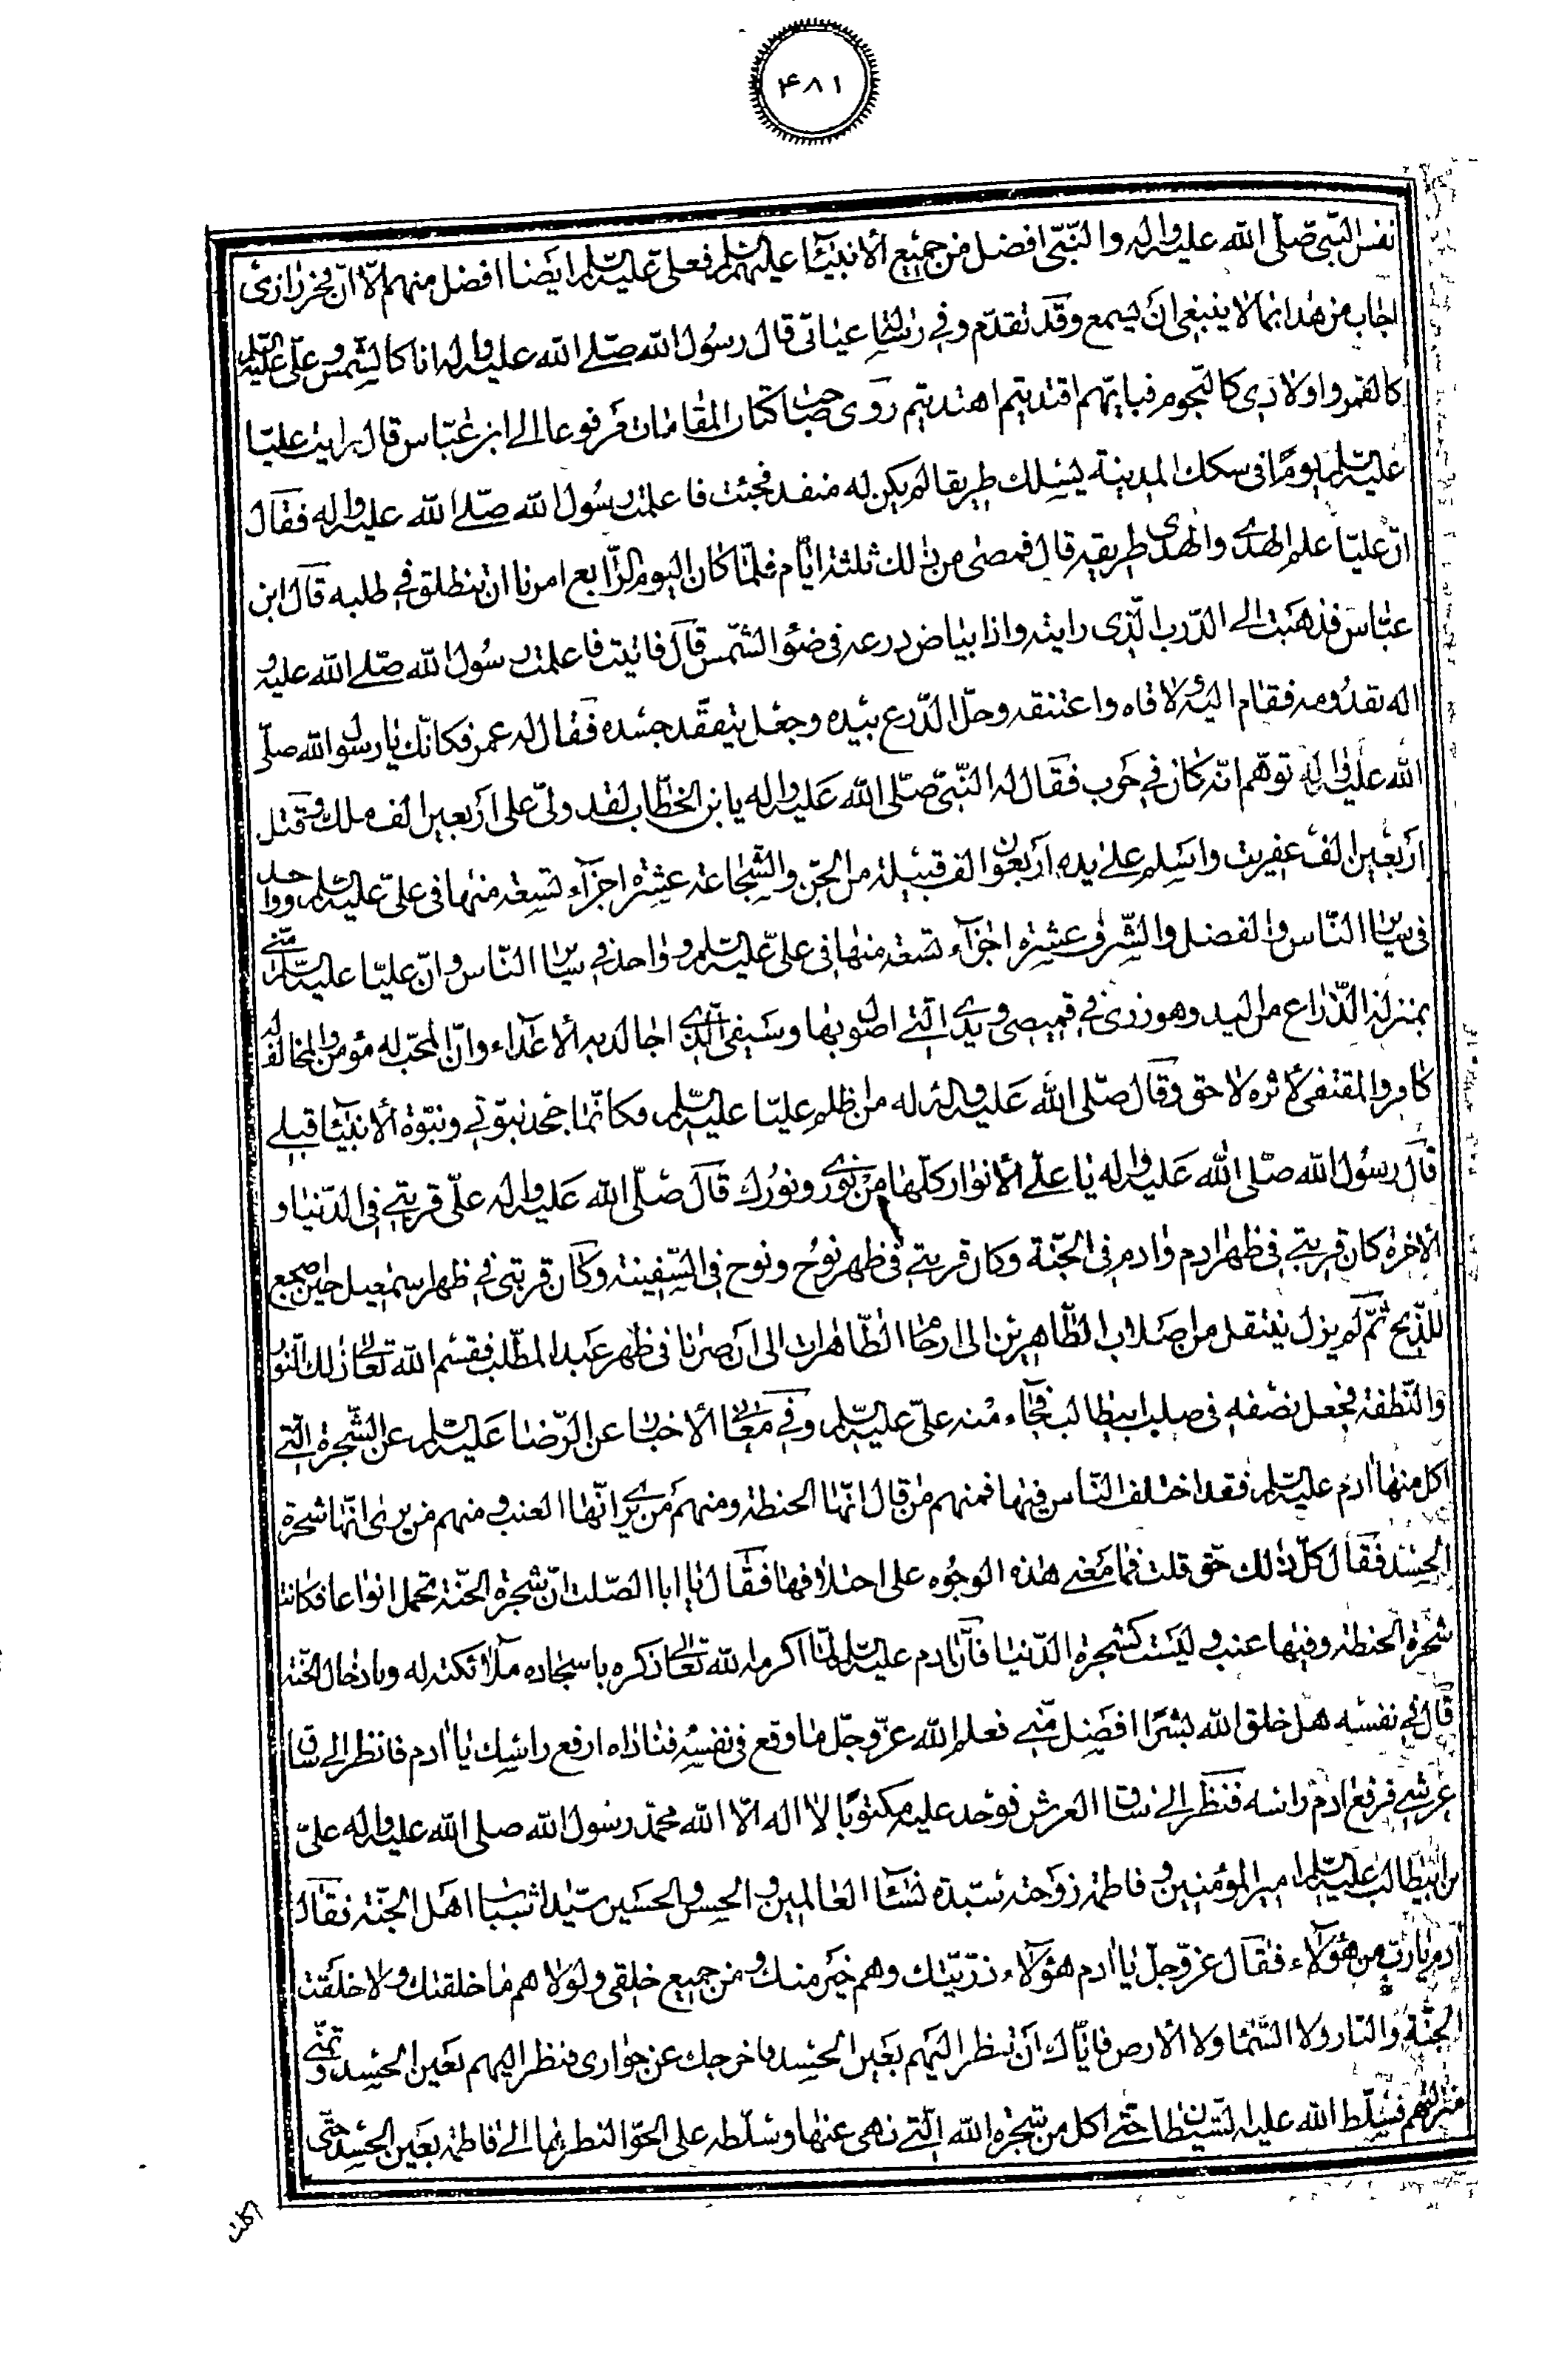 ۴۸۱
نفس النّبی صلّی الله علیه واله والنّبیّ افضل من جمیع الأنبیآء علیهم السّلم فعلیّ علیه السّلم ایضا افضل منهم الّا انّ فخر رازی
اجاب من هذا بما لا ینبغی ان یسمع وقد تقدّم وفی رسالة عیاتی قال رسول الله صلّی الله علیه واله انا کالشّمس وعلّی علیه السّلم
کالقمر واولادی کالنّجوم فبایّهم اقتدیتم اهتدیتم روی صاحب کتاب المقامات مرفوعا الی ابن عبّاس قال رایت علیّا
علیه السّلم یومًا فی سکك المدینة یسلك طریقا لم یکن له منفذ فجئت فاعلمت رسول الله صلّی الله علیه واله فقال
انّ علیّا علم الهدی والهدی طریقه قال فمضی من ذلك ثلثة ایّام فلمّا کان الیوم الرّابع امرنا ان ننطلق فی طلبه قال ابن
عبّاس فذهبت الی الدّرب الّذی رایته واذا بیاض درعه فی ضوء الشّمس قال فاتیت فاعلمت رسول الله صلّی الله علیه و
اله بقدومه فقام الیه ولاقاه واعتنقه وحلّ الدّرع بیده وجعل یتفقّد جسده فقال له عمر فکانّك یا رسول الله صلّی
الله علیه واله توهّم انّه کان فی حرب فقال له النّبیّ صلّی الله علیه واله یا بن الخطّاب لقد ولّی علی اربعین الف ملك وقتل
اربعین الف عفریت واسلم علی یده اربعون الف قبیلة من الجنّ والشّجاعة عشرة اجزآء تسعة منها فی علیّ علیه السّلم وواحد
فی سایر النّاس والفضل والشّرف عشرة اجزآء تسعة منها فی علیّ علیه السّلم وواحد فی سایر النّاس وانّ علیّا علیه السّلم منّی
بمنزلة الذّراع من الید وهو زرّی فی قمیصی ویدی الّتی اصول بها وسیفی الّذی اجالد به الأعدآء وانّ المحبّ له مؤمن والمخالف له
کافر والمقتفی لأثره لاحق وقال صلّی الله علیه واله من ظلم علیّا علیه السّلم فکانّما جحد نبوّتی ونبوّة الأنبیآء قبلی
قال رسول الله صلّی الله علیه واله یا علی الأنوار کلّها من نوری ونورك قال صلّی الله علیه واله علّی قرینی فی الدّنیا و
الاخرة کان قرینی فی ظهر ادم وادم فی الجنّة وکان قرینی فی ظهر نوح ونوح فی السّفینة وکان قرینی فی ظهر اسمعیل حین اضجع
للذّبح ثمّ لم یزل ینتقل من اصلاب الطّاهرین الی ارحام الطّاهرات الی ان صرنا فی ظهر عبد المطّلب فقسم الله تعالی ذلك النّور
والنّطفة فجعل نصفه فی صلب ابیطالب فجآء منه علیّ علیه السّلم وفی معانی الأخبار عن الرّضا علیه السّلم عن الشّجرة الّتی
اکل منها ادم علیه السّلم فقد اختلف النّاس فیها فمنهم من قال انّها الحنطة ومنهم من یری انّها العنب ومنهم من یری انّها شجرة
الحسد فقال کلّ ذلك حق قلت فما معنی هذه الوجوه علی اختلافها فقال یا ابا الصّلت انّ شجرة الجنّة تحمل انواعا فکانت
شجرة الحنطة وفیها عنب ولیست کشجرة الدّنیا فانّ ادم علیه السّلم لمّا اکرمه الله تعالی ذکره باسجاده ملآئکته له وبادخال الجنّة
قال فی نفسه هل خلق الله بشرًا افضل منّی فعلم الله عزّوجلّ ما وقع فی نفسه فناداه ارفع راسك یا ادم فانظر الی ساق
عرشی فرفع ادم راسه فنظر الی ساق العرش فوجد علیه مکتوبًا لا اله الّا الله محمّد رسول الله صلی الله علیه واله علیّ
بن ابیطالب علیه السّلم امیر المؤمنین وفاطمة زوجته سیّدة نسآء العالمین والحسن والحسین سیّدا شباب اهل الجنّة فقال
ادم یا ربّ من هؤلآء فقال عزّ وجلّ یا ادم هؤلآء ذرّیّتك وهم خیر منك ومن جمیع خلقی ولولا هم ما خلقتك ولا خلقت
الجنّة والنار ولا السّمآء ولا الأرض فایّاك ان تنظر الیهم بعین الحسد فاخرجك عن جواری فنظر الیهم بعین الحسد وتمنّی
منزلتهم فسلّط الله علیه الشّیطان حتّی اکل من شجرة الله الّتی نهی عنها وسلّطه علی الحوّا لنظرها الی فاطمة بعین الحسد حتّی
اکلت